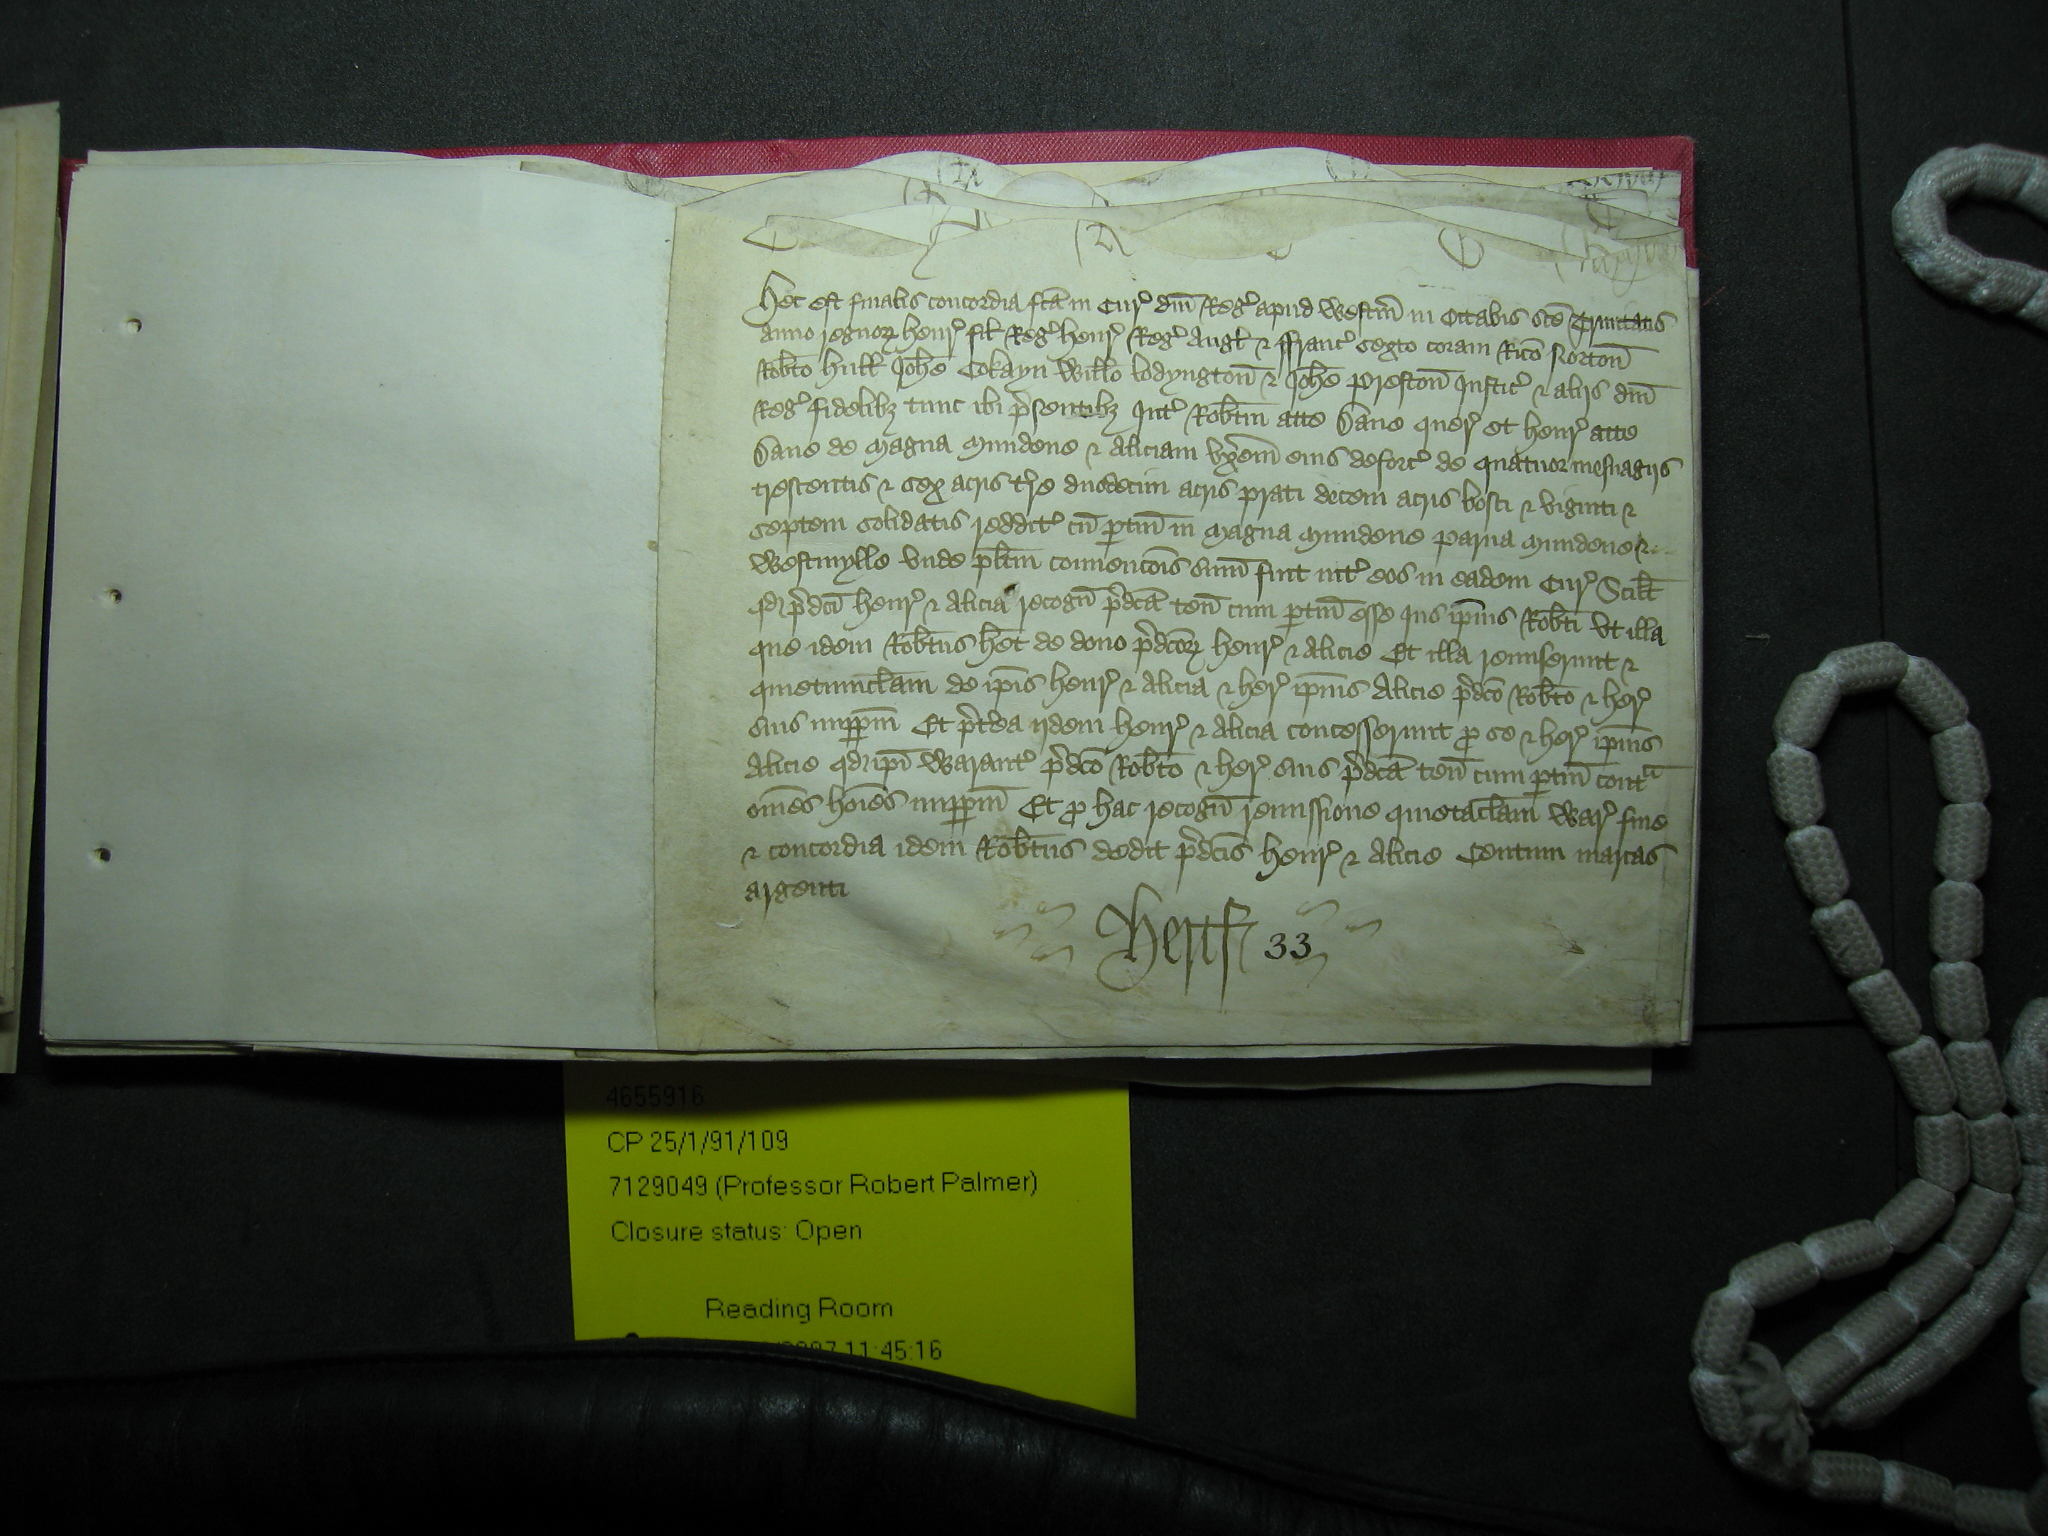 Hec est finalis concordia fc̄a in Cur' dn̄i Reg' apud Westm̄ in Octabis sc̄e Trinitatis
anno regnoꝝ Henr' fil' Reg' Henr' Reg' Angl' & ffranc' sexto coram Ric̄o Norton̄
Rob̄to Hull' Joh̄e Cokayn Will̄o Bodyngton̄ & Joh̄e Preston̄ Justic' & alijs dn̄i
Reg' fidelibꝫ tunc ibi p̄sentibꝫ Int' Rob̄tm atte Dane quer' et Henr' atte
Dane de Magna Mundene & Aliciam vx̄em eius deforc' de quatuor mesuagijs
trescentis & sex acris t're duodecim acris prati decem acris bosci & viginti &
septem solidatis reddit' cū ptin̄ in Magna Mundene Parua Mundene &
Westmylle vnde pl̄itm conuenc̄ois sum̄ fuit int' eos in eadem Cur' Scil̄t
qd p̄dc̄i Henr' & Alicia recogn̄ p̄dc̄a ten̄ cum ptin̄ esse Jus ip̄ius Rob̄ti vt illa
que idem Rob̄tus h̄et de dono p̄dc̄oꝝ Henr' & Alicie Et illa remiserunt &
quietumclam̄ de ip̄is Henr' & Alicia & her' ip̄ius Alicie p̄dc̄o Rob̄to & her'
suis imppm̄ Et p̄terea ijdem Henr' & Alicia concesserunt p se & her' ip̄ius
Alicie qd ip̄i Warant' p̄dc̄o Rob̄to & her' suis p̄dc̄a ten̄ cum ptin̄ contᵃ
om̄es ho̅ies imppm̄ Et p hac recogn̄ remissione quietaclam̄ War' fine
& concordia idem Rob̄tus dedit p̄dc̄is Henr' & Alicie Centum marcas
argenti
Hertf 33
4655916
CP 25/1/91/109
7129049 (Professor Robert Palmer)
Closure status: Open
Reading Room
11:45:16